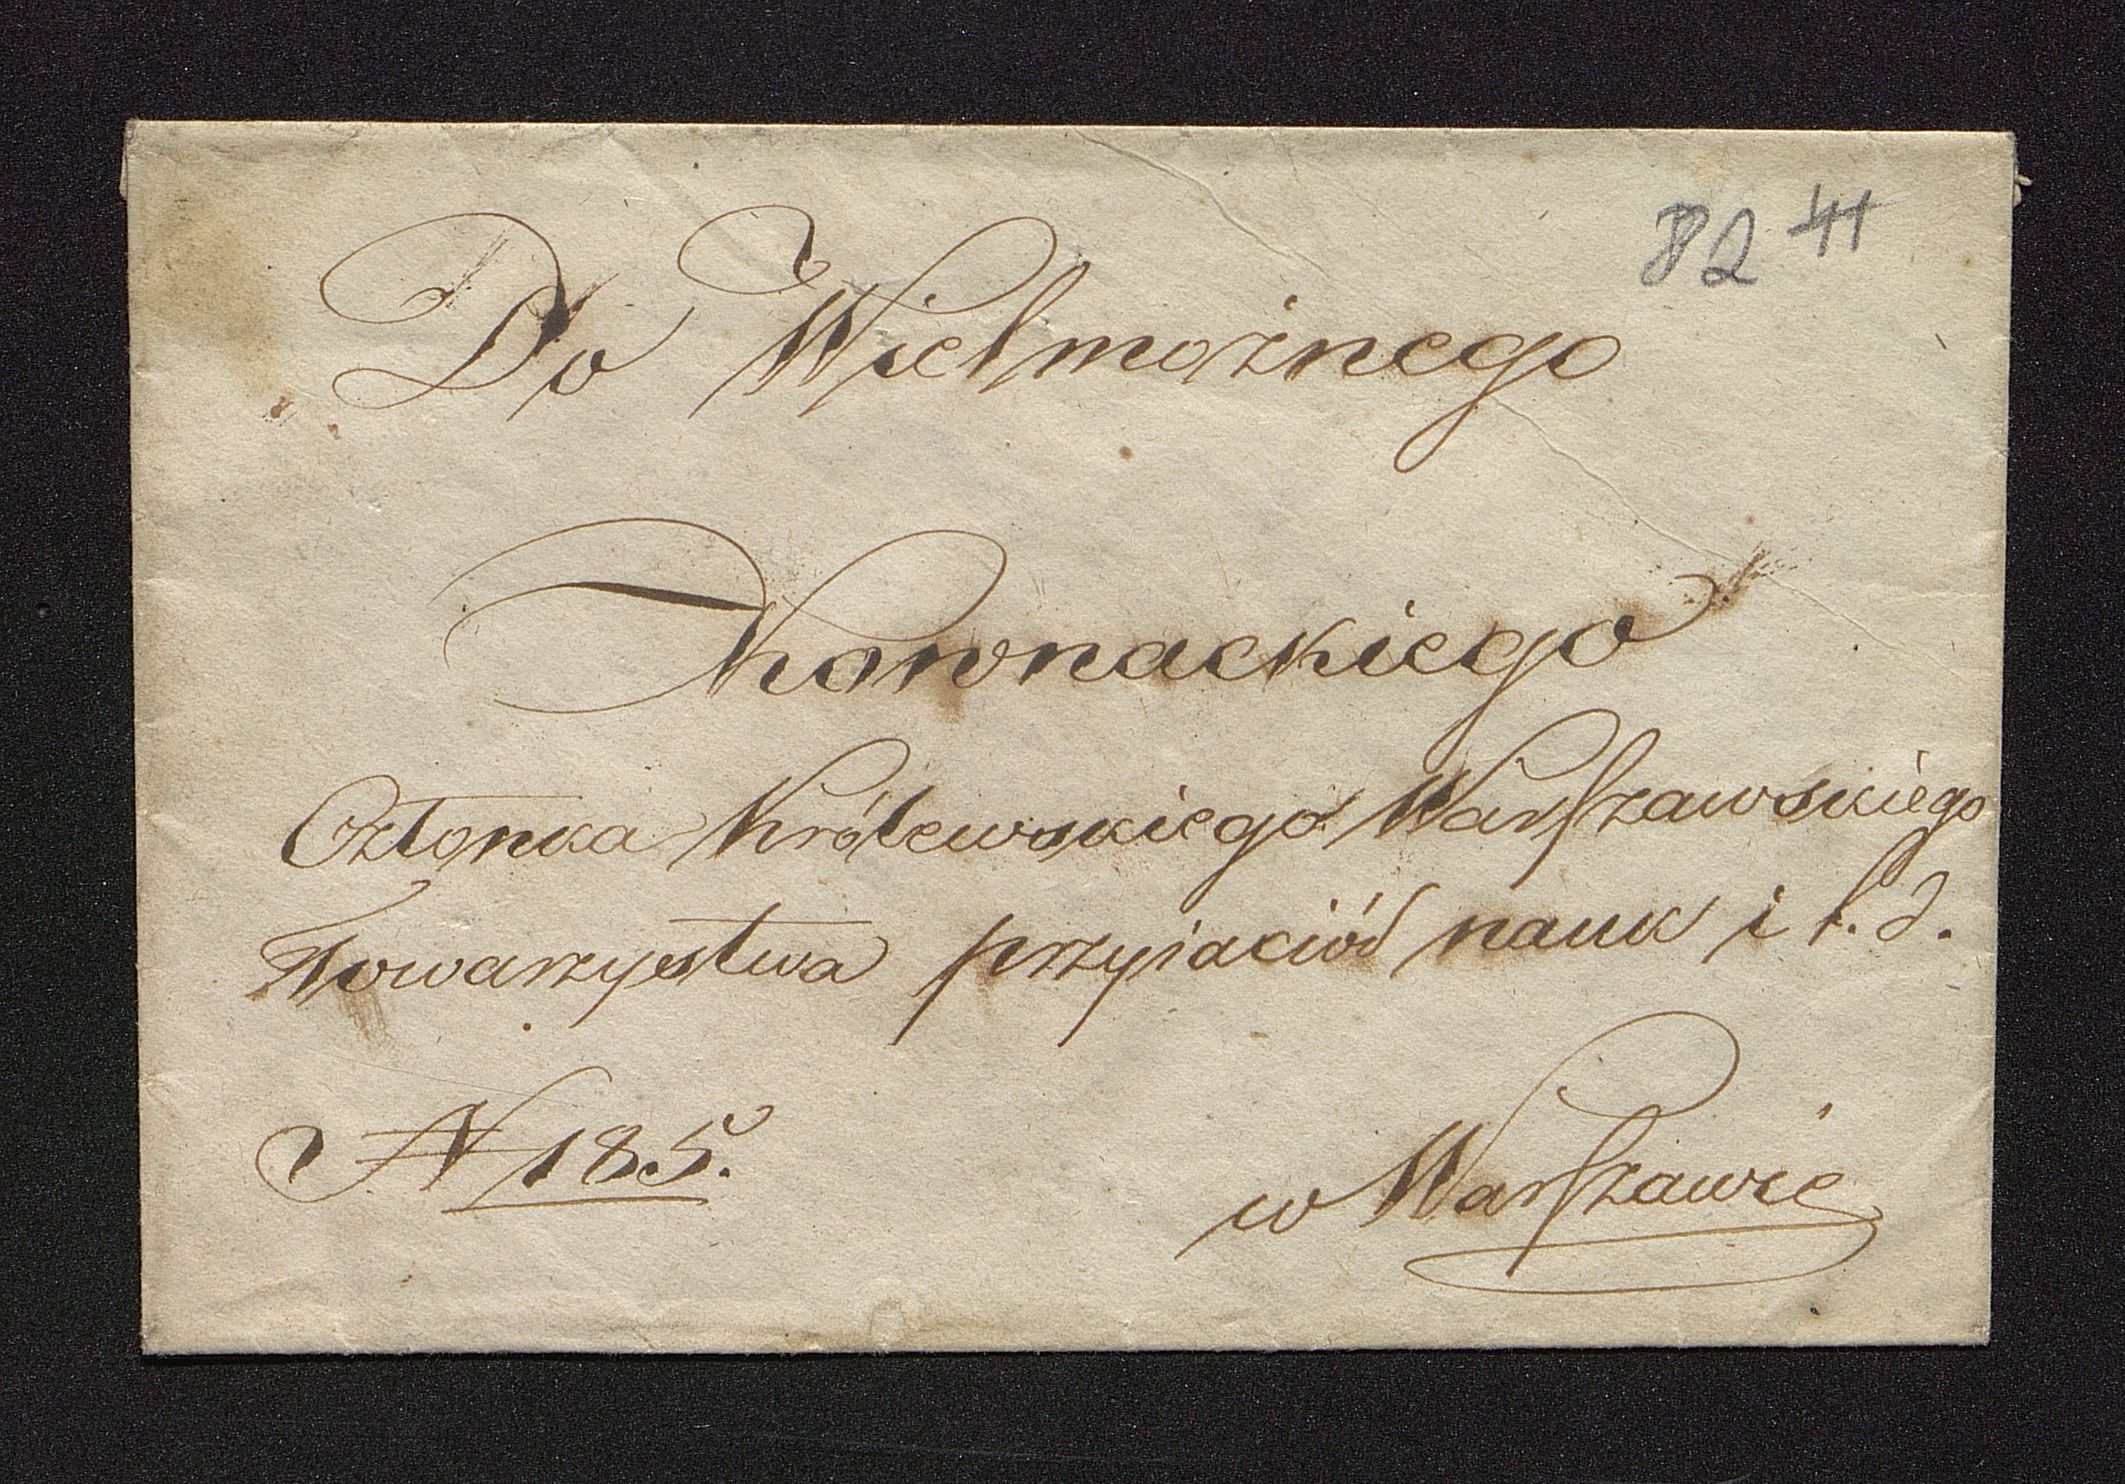 82
Do Wielmożnego
Kownackiego
Członka Królewskiego Warszawskiego
Towarzystwa przyiaciół nauk i t. d.
N 185.
w Warszawie